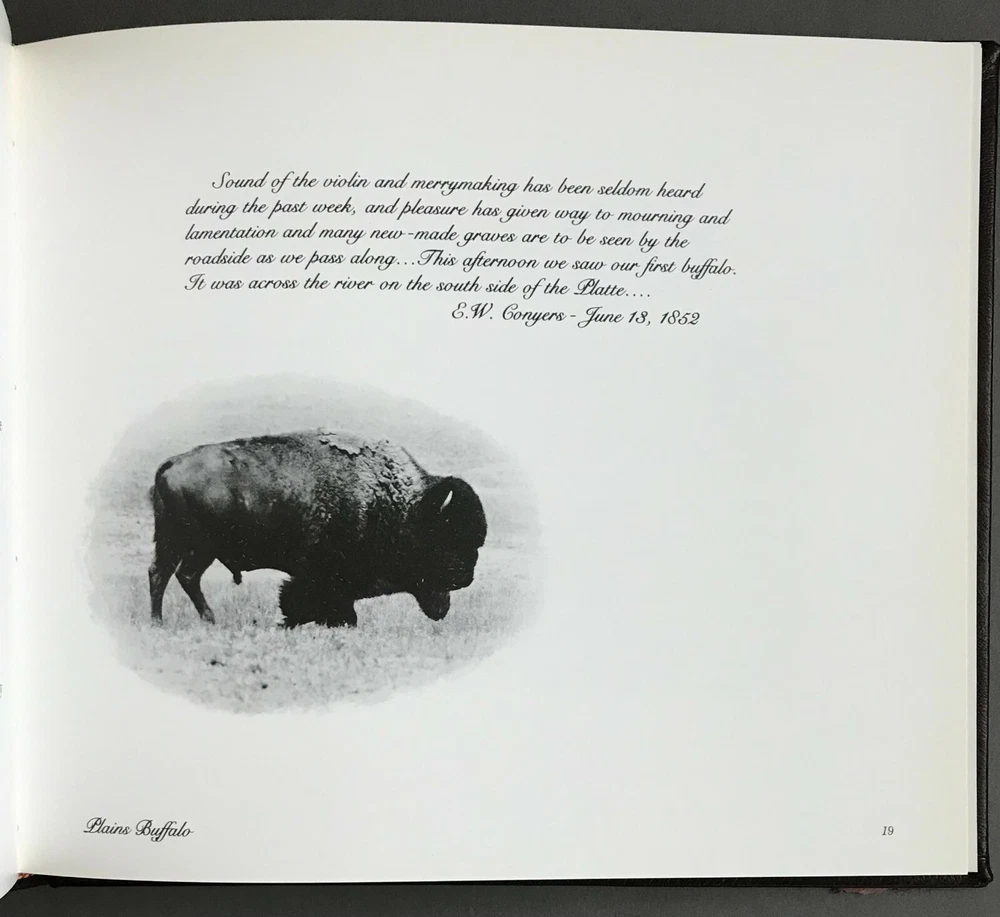 Sound of the violin and merrymaking has been seldom heard
during the past week, and pleasure has given way to mourning and
lamentation and many new-made graves are to be seen by the
roadside as we pass along...This afternoon we saw our first buffalo.
It was across the river on the south side of the Platte....
E.W. Conyers - June 13, 1852
Plains Buffalo
19